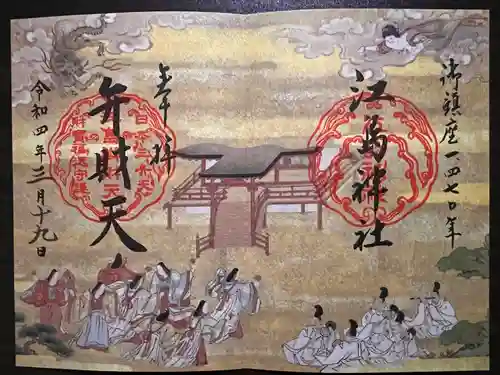 御鎮座一四七〇年
江島神社
奉拝
弁財天
令和四年三月十九日